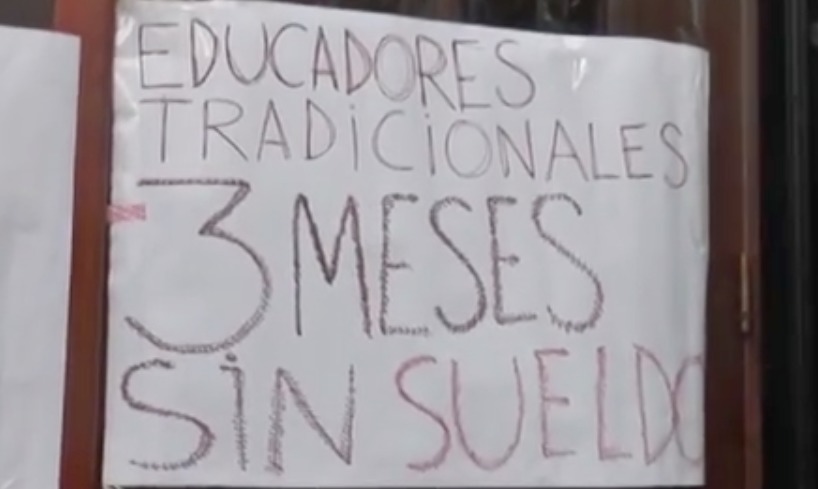 EDUCADORES
TRADiCiONALES
3 MESES
SiN SUELDO